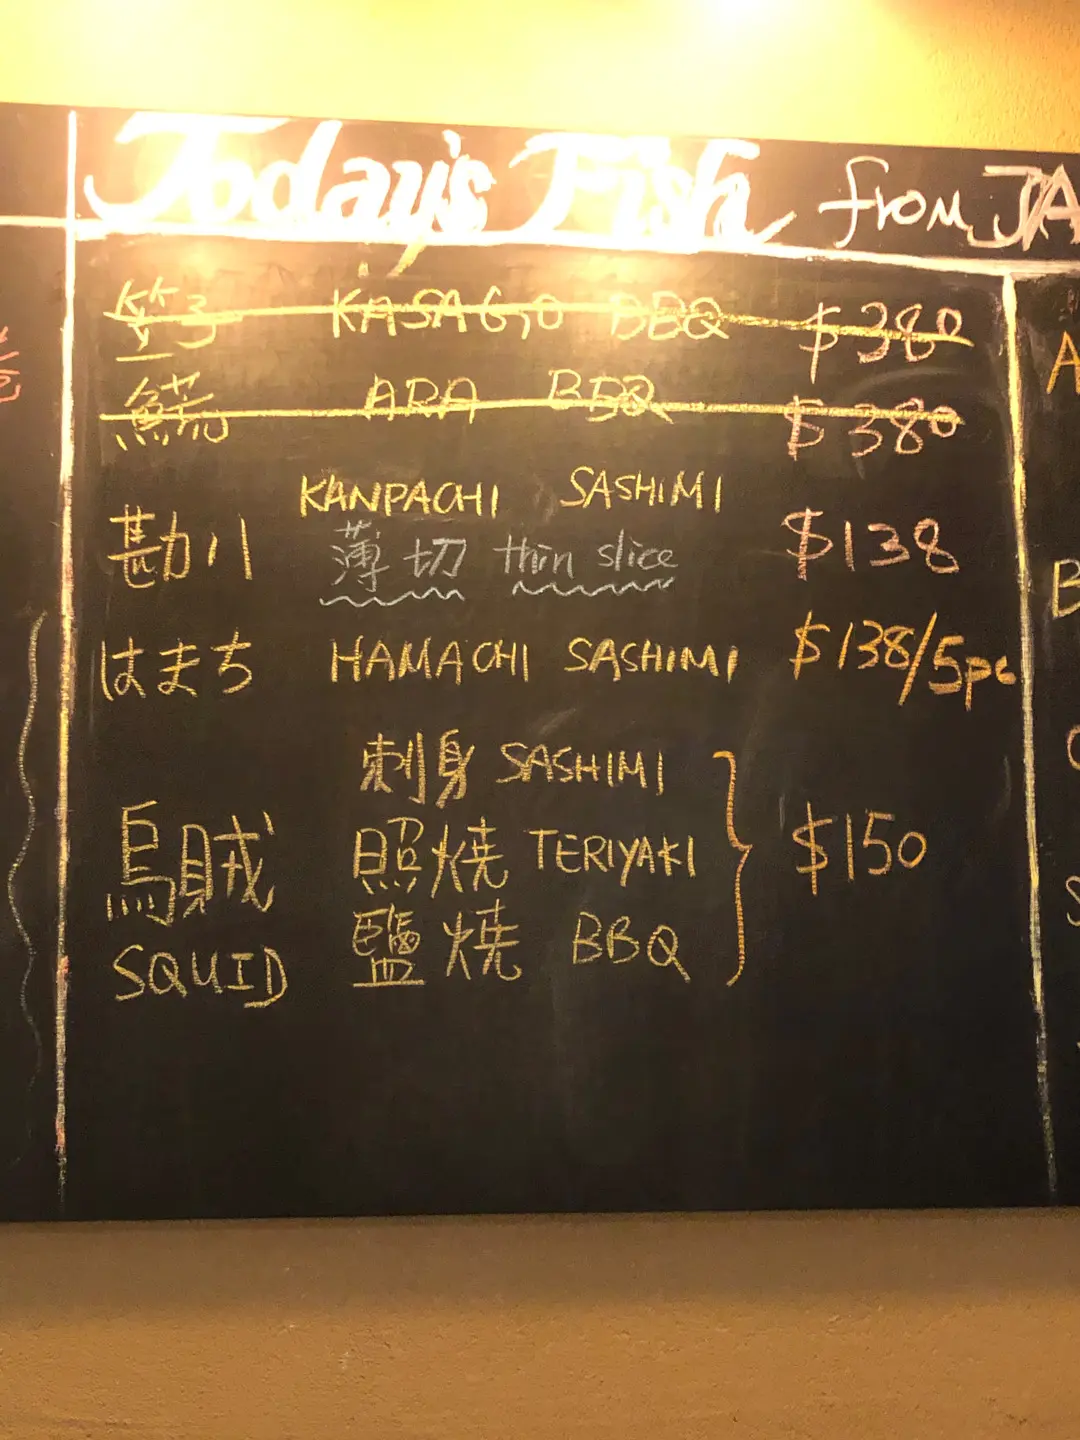 Today's Fish from JA
笠子 KASAGO BBQ $380
鱻 ARA BBQ $380
KANPACHI SASHIMI
勘八 薄切 thin slice $138
はまち HAMACHI SASHIMI $138/5pc
刺身 SASHIMI
烏賊 照焼 TERIYAKI $150
SQUID 鹽焼 BBQ